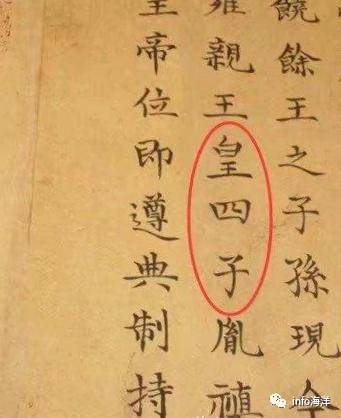 饒餘王之子孫現今
雍親王皇四子胤禛
皇帝位即遵典制持
info海洋